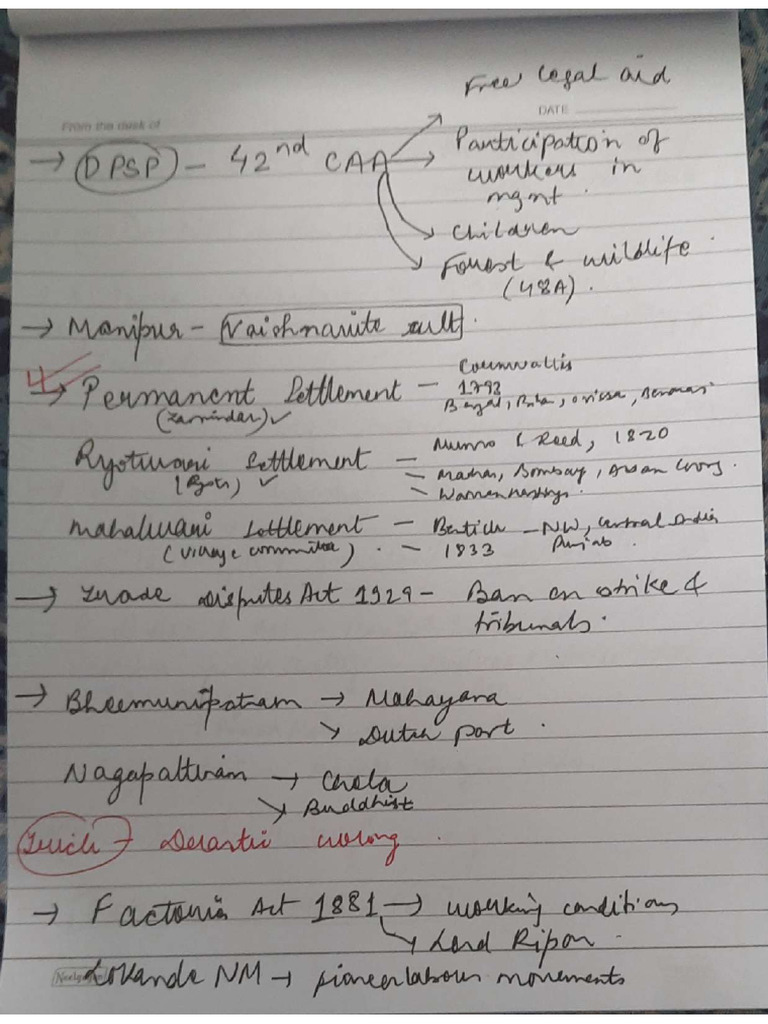 Free legal aid
From the desk of
DATE
→ DPSP - 42nd CAA → Participation of
workers in
mgmt.
Children
Forest & wildlife.
(48A).
→ Manipur - Vaishnavite cult.
→ Permanent Settlement - Cornwallis
1793
(Zamindar) ✓ Bengal, Bihar, Orissa, Benaras
Ryotwari Settlement - Munro & Reed, 1820
(Ryots) ✓ - Madras, Bombay, Assam Coorg.
- Warren Hastings.
Mahalwari Settlement - Bentick - NW, Central India
(village committee). - 1833 Punjab.
→ Trade Disputes Act 1929 - Ban on strike &
tribunals.
→ Bheemunipatnam → Mahayana
↘ Dutch port.
Nagapattinam → Chola
↘ Buddhist
Trick → Derastic wrong.
→ Factories Act 1881 → working conditions
↘ Lord Ripon.
Lokande NM → pioneer labour movements